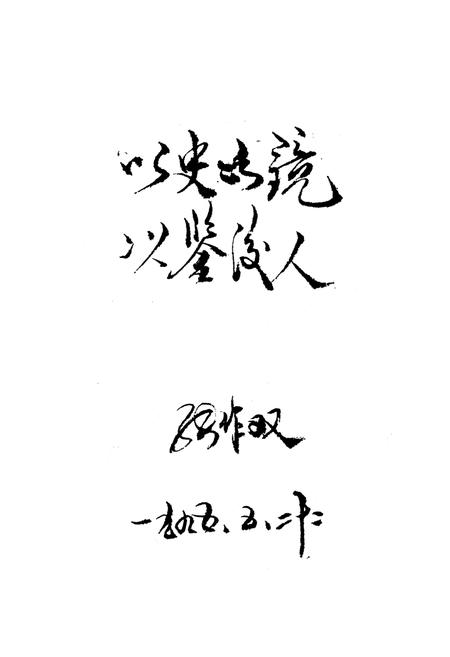 以史为鏡
以鉴後人
张作双
一九九五、五、二十二